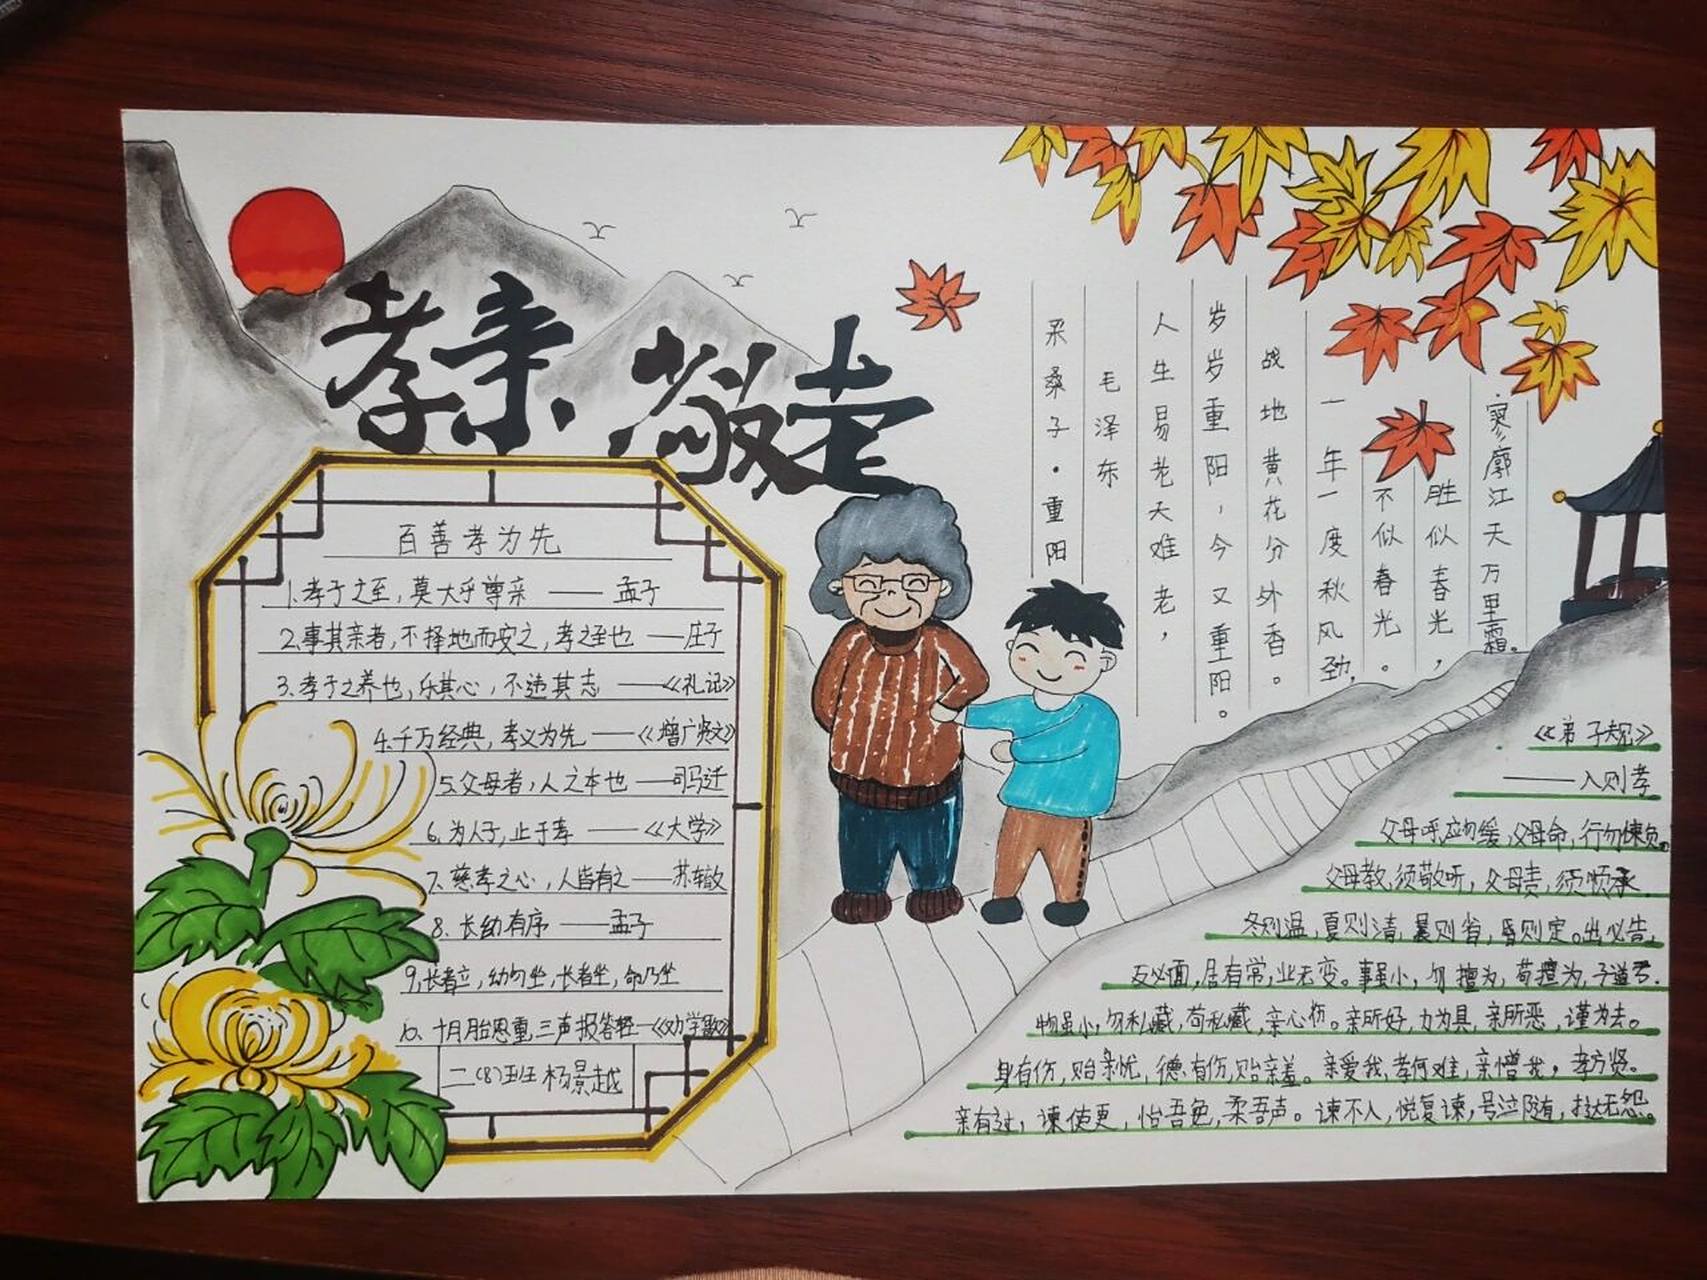 孝亲敬老
百善孝为先
1.孝子之至,莫大乎尊亲 —— 孟子
2.事其亲者,不择地而安之,孝之至也 ——庄子
3.孝子之养也,乐其心,不违其志 ——《礼记》
4.千万经典,孝义为先 ——《增广贤文》
5.父母者,人之本也 ——司马迁
6.为人子,止于孝 ——《大学》
7.慈孝之心,人皆有之——苏辙
8.长幼有序 ——孟子
9.长者立,幼勿坐,长者坐,命乃坐
10.十月胎恩重,三声报答轻—《劝学歌》
二(8)班 杨景越
采桑子·重阳
毛泽东
人生易老天难老,
岁岁重阳,今又重阳。
战地黄花分外香。
一年一度秋风劲,
不似春光。
胜似春光,
寥廓江天万里霜。
《弟子规》
——入则孝
父母呼,应勿缓,父母命,行勿懒
父母教,须敬听,父母责,须顺承
冬则温,夏则清,晨则省,昏则定。出必告,
反必面,居有常,业无变。事虽小,勿擅为,苟擅为,子道亏.
物虽小,勿私藏,苟私藏,亲心伤。亲所好,力为具,亲所恶,谨为去。
身有伤,贻亲忧,德有伤,贻亲羞。亲爱我,孝何难,亲憎我,孝方贤。
亲有过,谏使更,怡吾色,柔吾声。谏不入,悦复谏,号泣随,挞无怨。